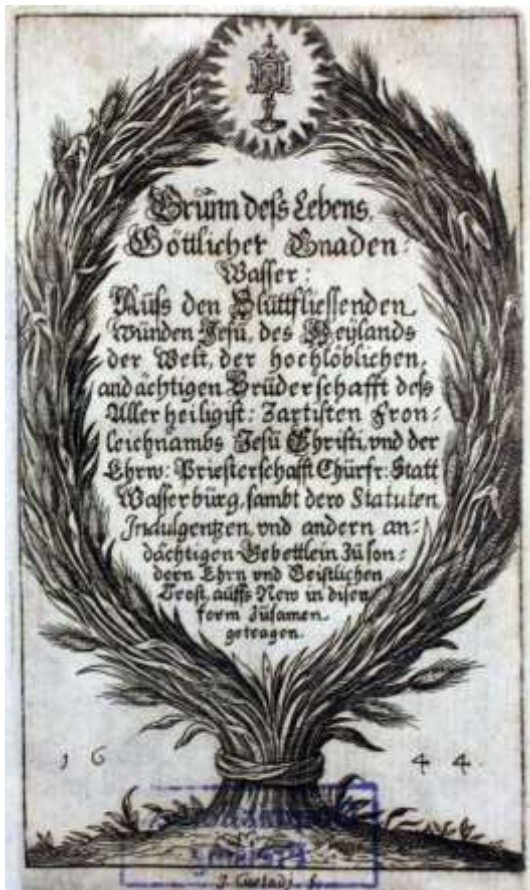 Brunn deſs Lebens,
Göttlicher Gnaden:
Waſſer:
Auſs den Bluttflieſſenden
Wunden Jeſu, des Heylands
der Welt, der hochloblichen,
andächtigen Bruderſchafft deſs
Aller heiligiſt: Zartiſten Fron-
leichnambs Jeſu Chriſti, vnd der
Ehrw: Prieſterſchafft Churfr: Statt
Waſſerburg, ſambt dero Statuten
Indulgentzen, vnd andern an-
dächtigen Gebettlein Zu ſon-
dern Ehrn vnd Geiſtlichen
Troſt, auffs New in diſen
form Zuſamen
getragen.
16 44.